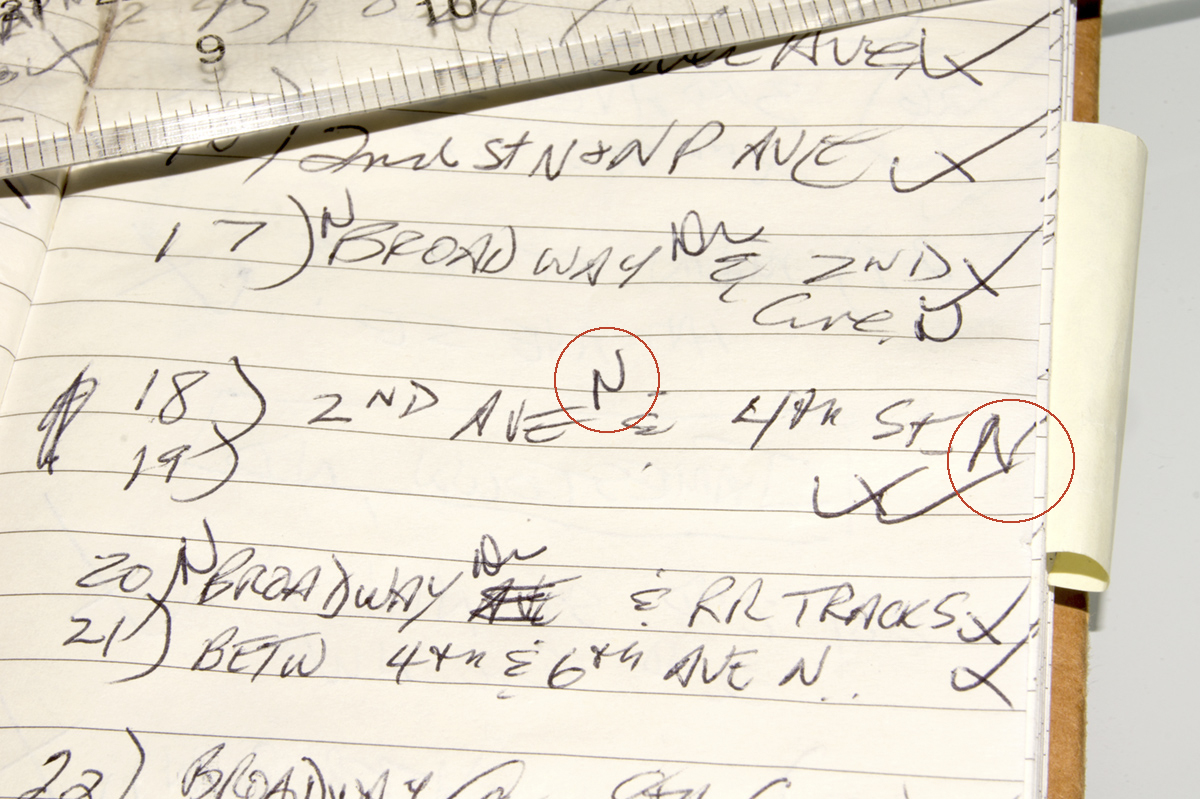 9 10
AVE
2nd St N & N P AVE
17) N BROADWAY Dr & 2ND
Ave. N
18) 2ND AVE N & 4th St N
19)
20) N BROADWAY Dr & RR TRACKS
21) BETW 4th & 6th AVE N.
22) BROADWAY